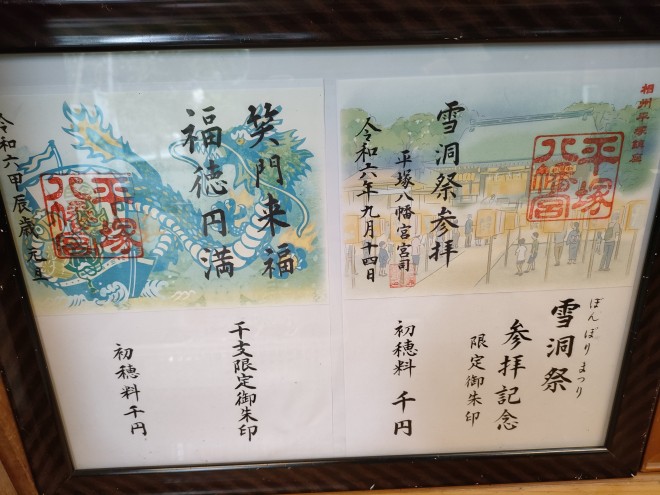 相州平塚鎮座
平塚
八幡宮
雪洞祭参拝
平塚八幡宮宮司
令和六年九月十四日
ぼんぼりまつり
雪洞祭
参拝記念
限定御朱印
初穂料 千円
笑門来福
福徳円満
平塚
八幡宮
令和六甲辰歳元旦
干支限定御朱印
初穂料千円